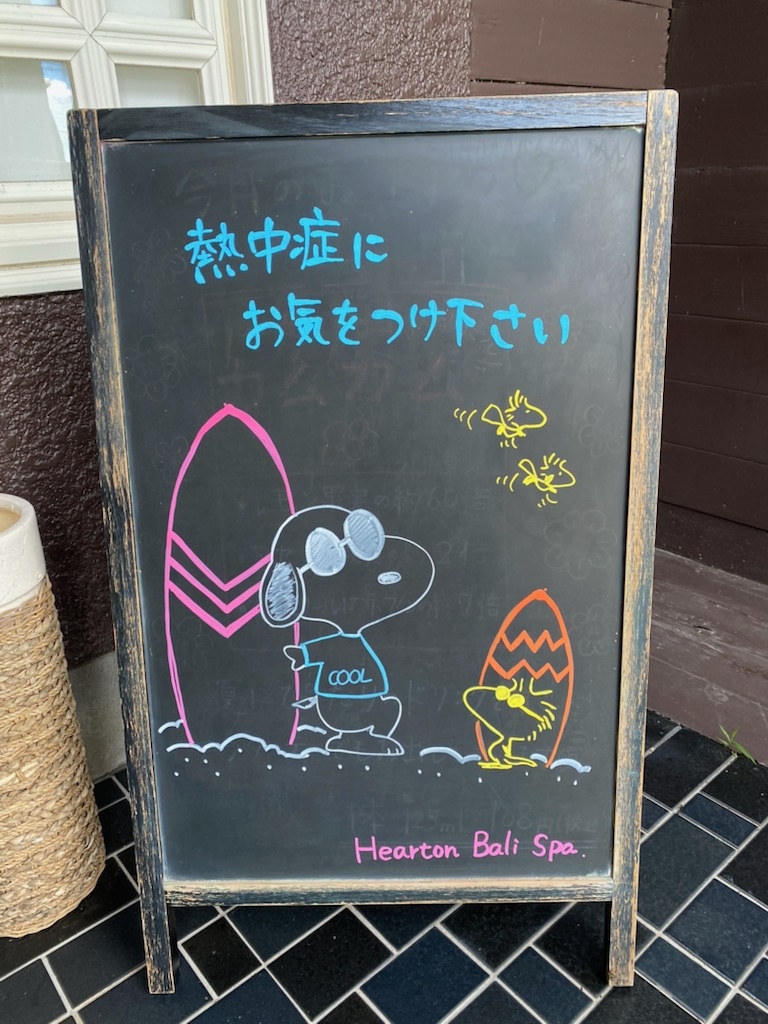 熱中症に
お気をつけ下さい
COOL
Hearton Bali Spa.